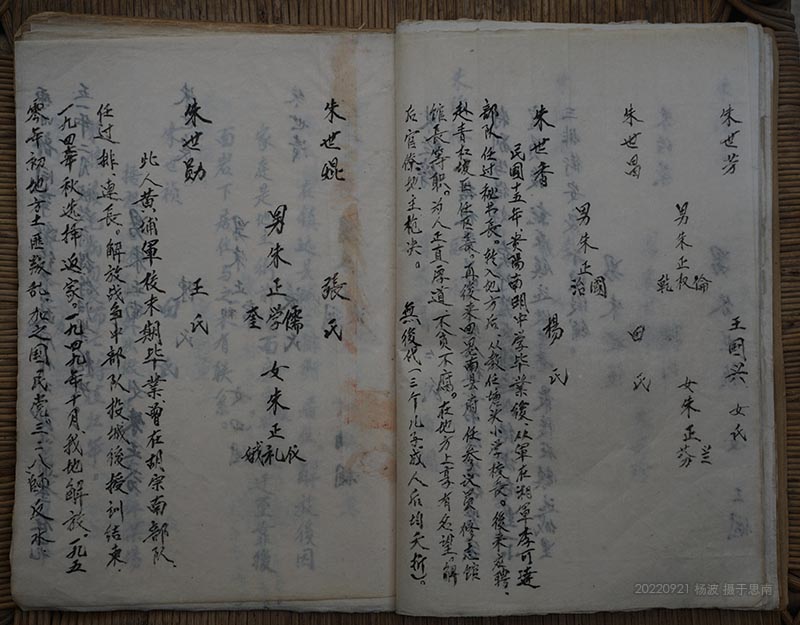 朱世芳
王國兴女氏
男朱正权
倫
乾
女朱正芬
兰
朱世昌
田氏
男朱正
國
治
朱世香
楊氏
民國十五年貴陽南明中学毕業後、从軍在湖軍李可達
部队任过秘书长。转入地方后、从教任场头小学校長。後来应聘、
赴青杠坡区任区長。再後来由思南县府任参议员修志馆
馆長等职。为人正直厚道、不贪不腐。在地方上享有名望。解
后官僚、地主枪决。 無後代(三个儿子成人后均夭折)。
朱世焜
張氏
男朱正学
儒
奎
女朱正礼
仪
娥
朱世勋
王氏
此人黄埔軍校末期毕業曾在胡宗南部队、
任过排、連長。解放战争中部队投城後授訓结束、
一九四 年秋选择返家。一九四九年十月我地解放。一九五
零年初地方土匪叛乱、加之国民党三二八師反水
20220921 杨波 摄于思南